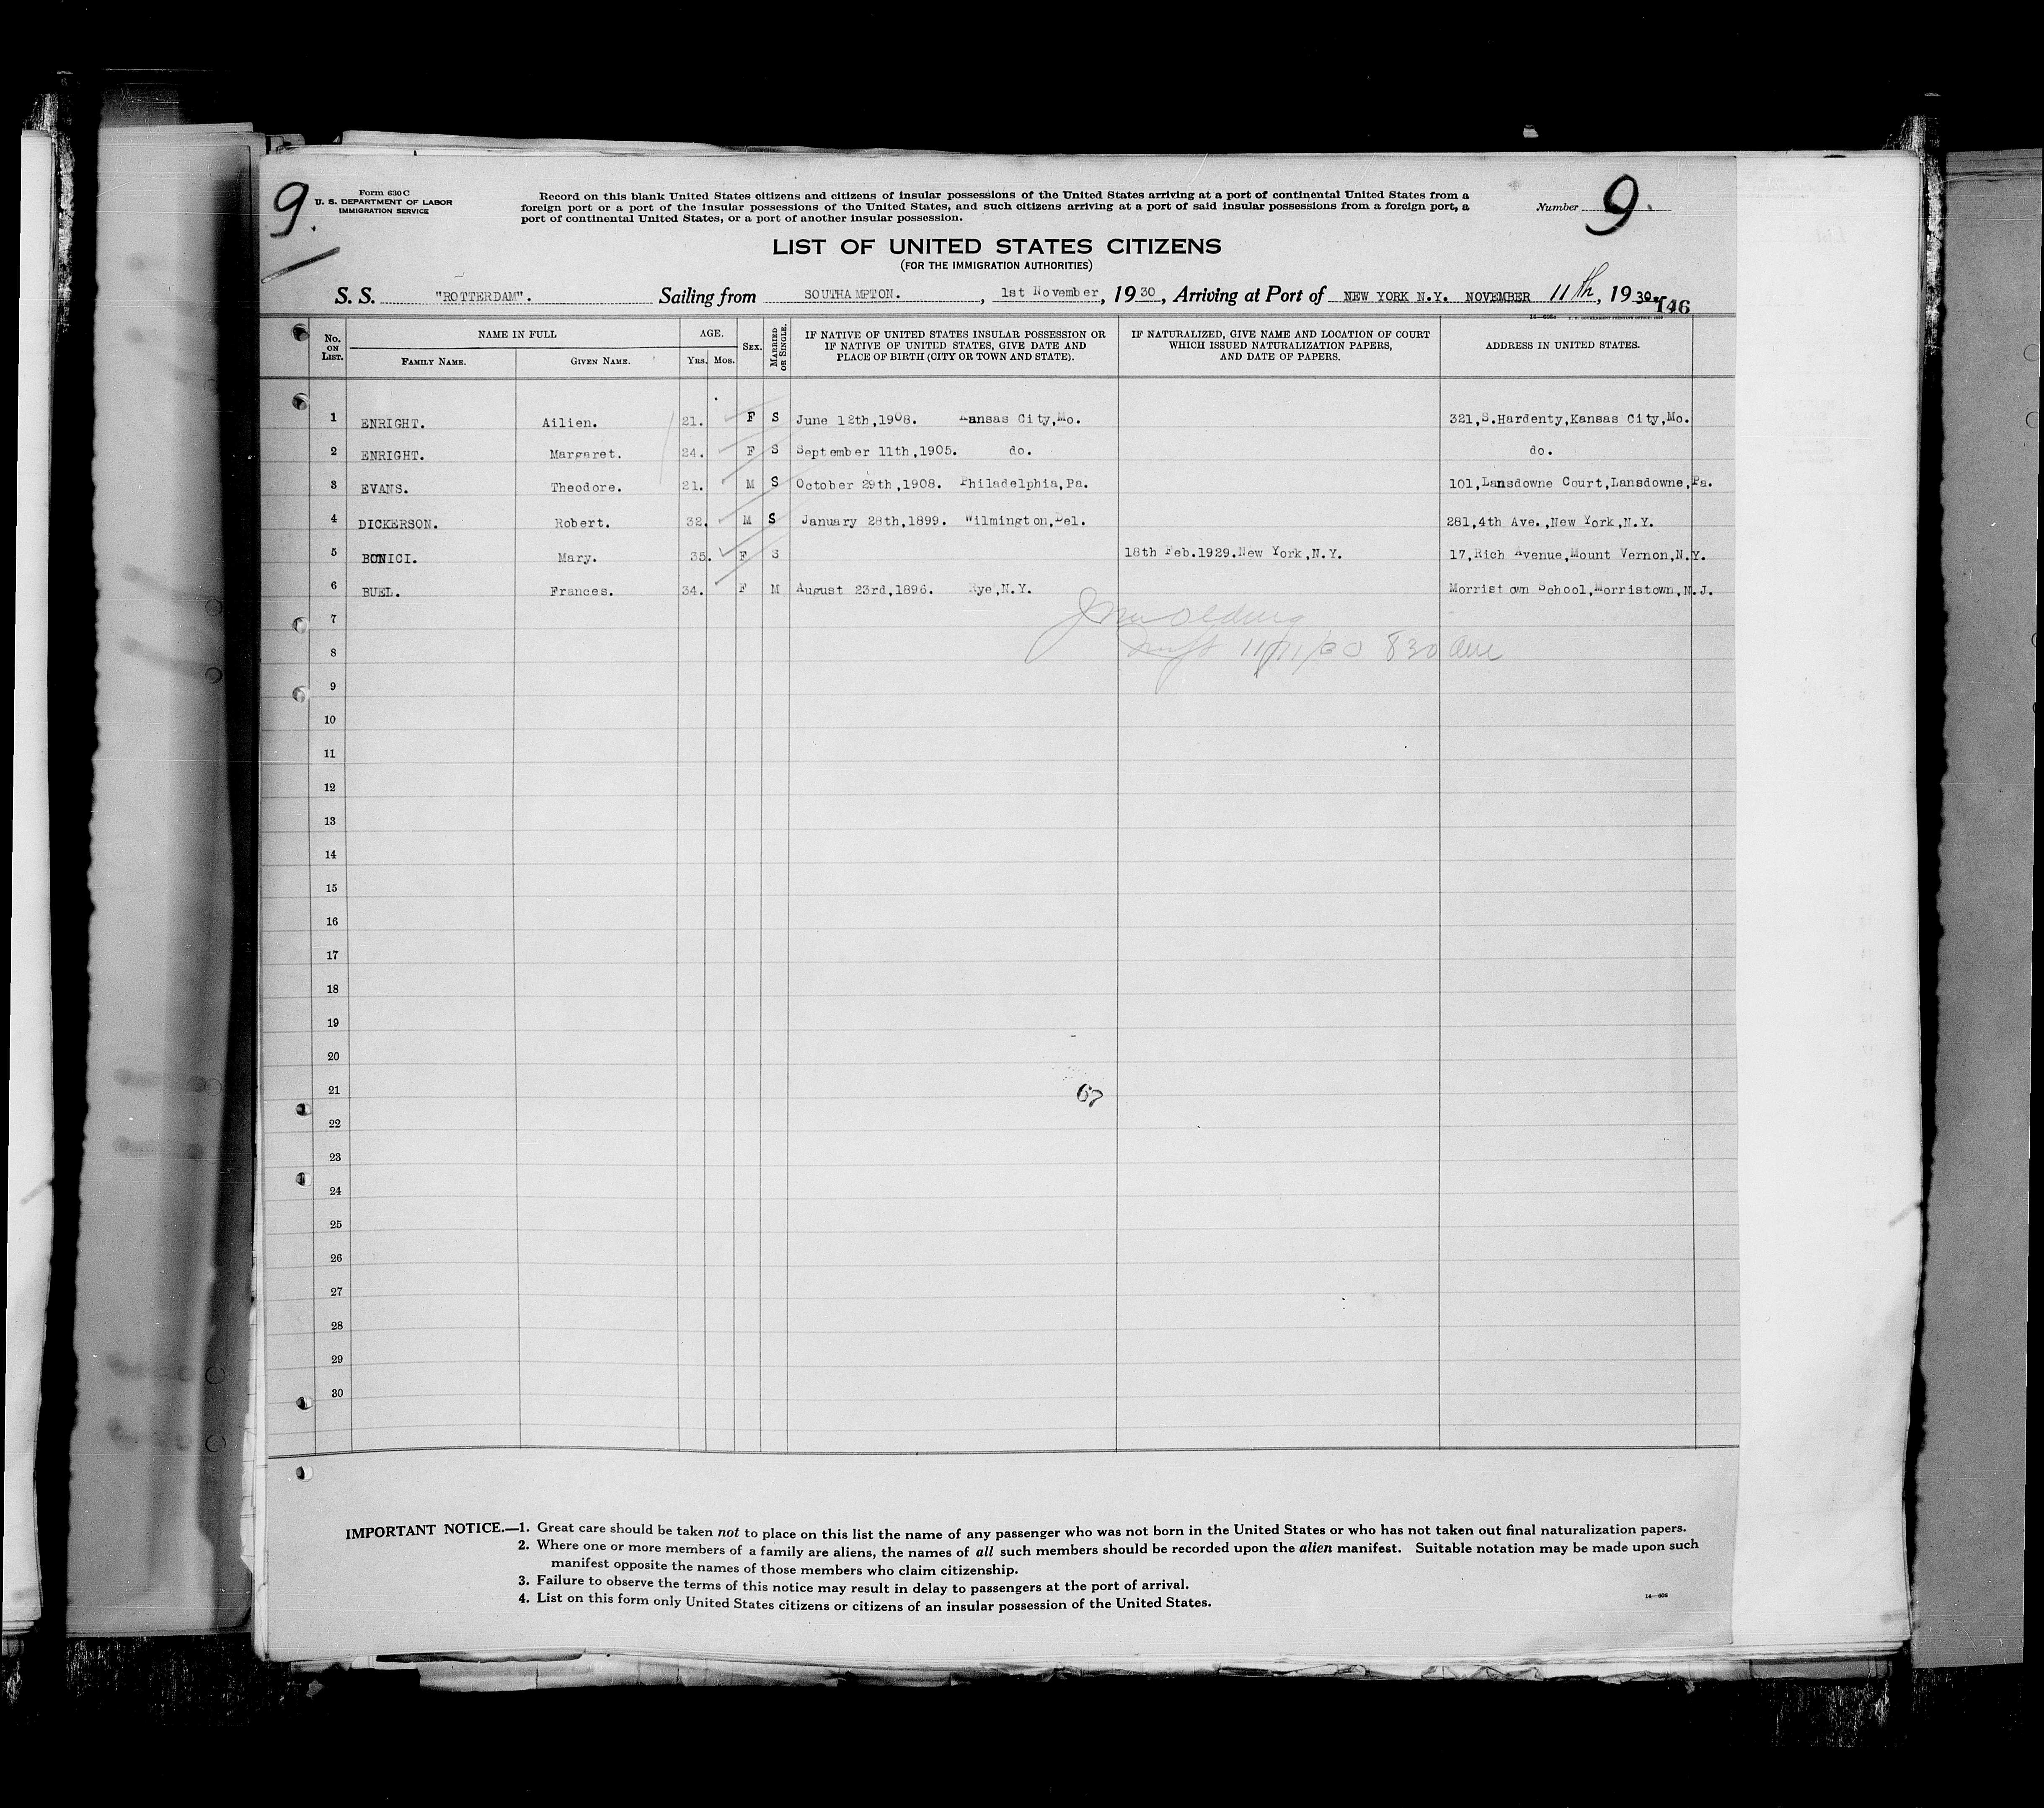 9.
Form 630 C
U. S. DEPARTMENT OF LABOR
IMMIGRATION SERVICE
Record on this blank United States citizens and citizens of insular possessions of the United States arriving at a port of continental United States from a
foreign port or a port of the insular possessions of the United States, and such citizens arriving at a port of said insular possessions from a foreign port, a
port of continental United States, or a port of another insular possession.
Number 9.
LIST OF UNITED STATES CITIZENS
(FOR THE IMMIGRATION AUTHORITIES)
S. S. "ROTTERDAM". Sailing from SOUTHAMPTON. , 1st November , 1930 , Arriving at Port of NEW YORK N.Y. NOVEMBER 11th , 1930.
146
No. ON LIST. NAME IN FULL FAMILY NAME. GIVEN NAME. AGE. Yrs. Mos. SEX. MARRIED OR SINGLE. IF NATIVE OF UNITED STATES INSULAR POSSESSION OR IF NATIVE OF UNITED STATES, GIVE DATE AND PLACE OF BIRTH (CITY OR TOWN AND STATE). IF NATURALIZED, GIVE NAME AND LOCATION OF COURT WHICH ISSUED NATURALIZATION PAPERS, AND DATE OF PAPERS. ADDRESS IN UNITED STATES.
1 ENRIGHT. Ailien. 21. F S June 12th,1908. Kansas City,Mo. 321,S.Hardenty,Kansas City,Mo.
2 ENRIGHT. Margaret. 24. F S September 11th,1905. do. do.
3 EVANS. Theodore. 21. M S October 29th,1908. Philadelphia,Pa. 101,Lansdowne Court,Lansdowne,Pa.
4 DICKERSON. Robert. 32. M S January 28th,1899. Wilmington,Del. 281,4th Ave.,New York,N.Y.
5 BONICI. Mary. 35. F S 18th Feb.1929.New York,N.Y. 17,Rich Avenue,Mount Vernon,N.Y.
6 BUEL. Frances. 34. F M August 23rd,1896. Rye,N.Y. Morristown School,Morristown,N.J.
7
8 11/11/30 830 am
9
10
11
12
13
14
15
16
17
18
19
20
21
67
22
23
24
25
26
27
28
29
30
IMPORTANT NOTICE.—1. Great care should be taken not to place on this list the name of any passenger who was not born in the United States or who has not taken out final naturalization papers.
2. Where one or more members of a family are aliens, the names of all such members should be recorded upon the alien manifest. Suitable notation may be made upon such
manifest opposite the names of those members who claim citizenship.
3. Failure to observe the terms of this notice may result in delay to passengers at the port of arrival.
4. List on this form only United States citizens or citizens of an insular possession of the United States.
14—606